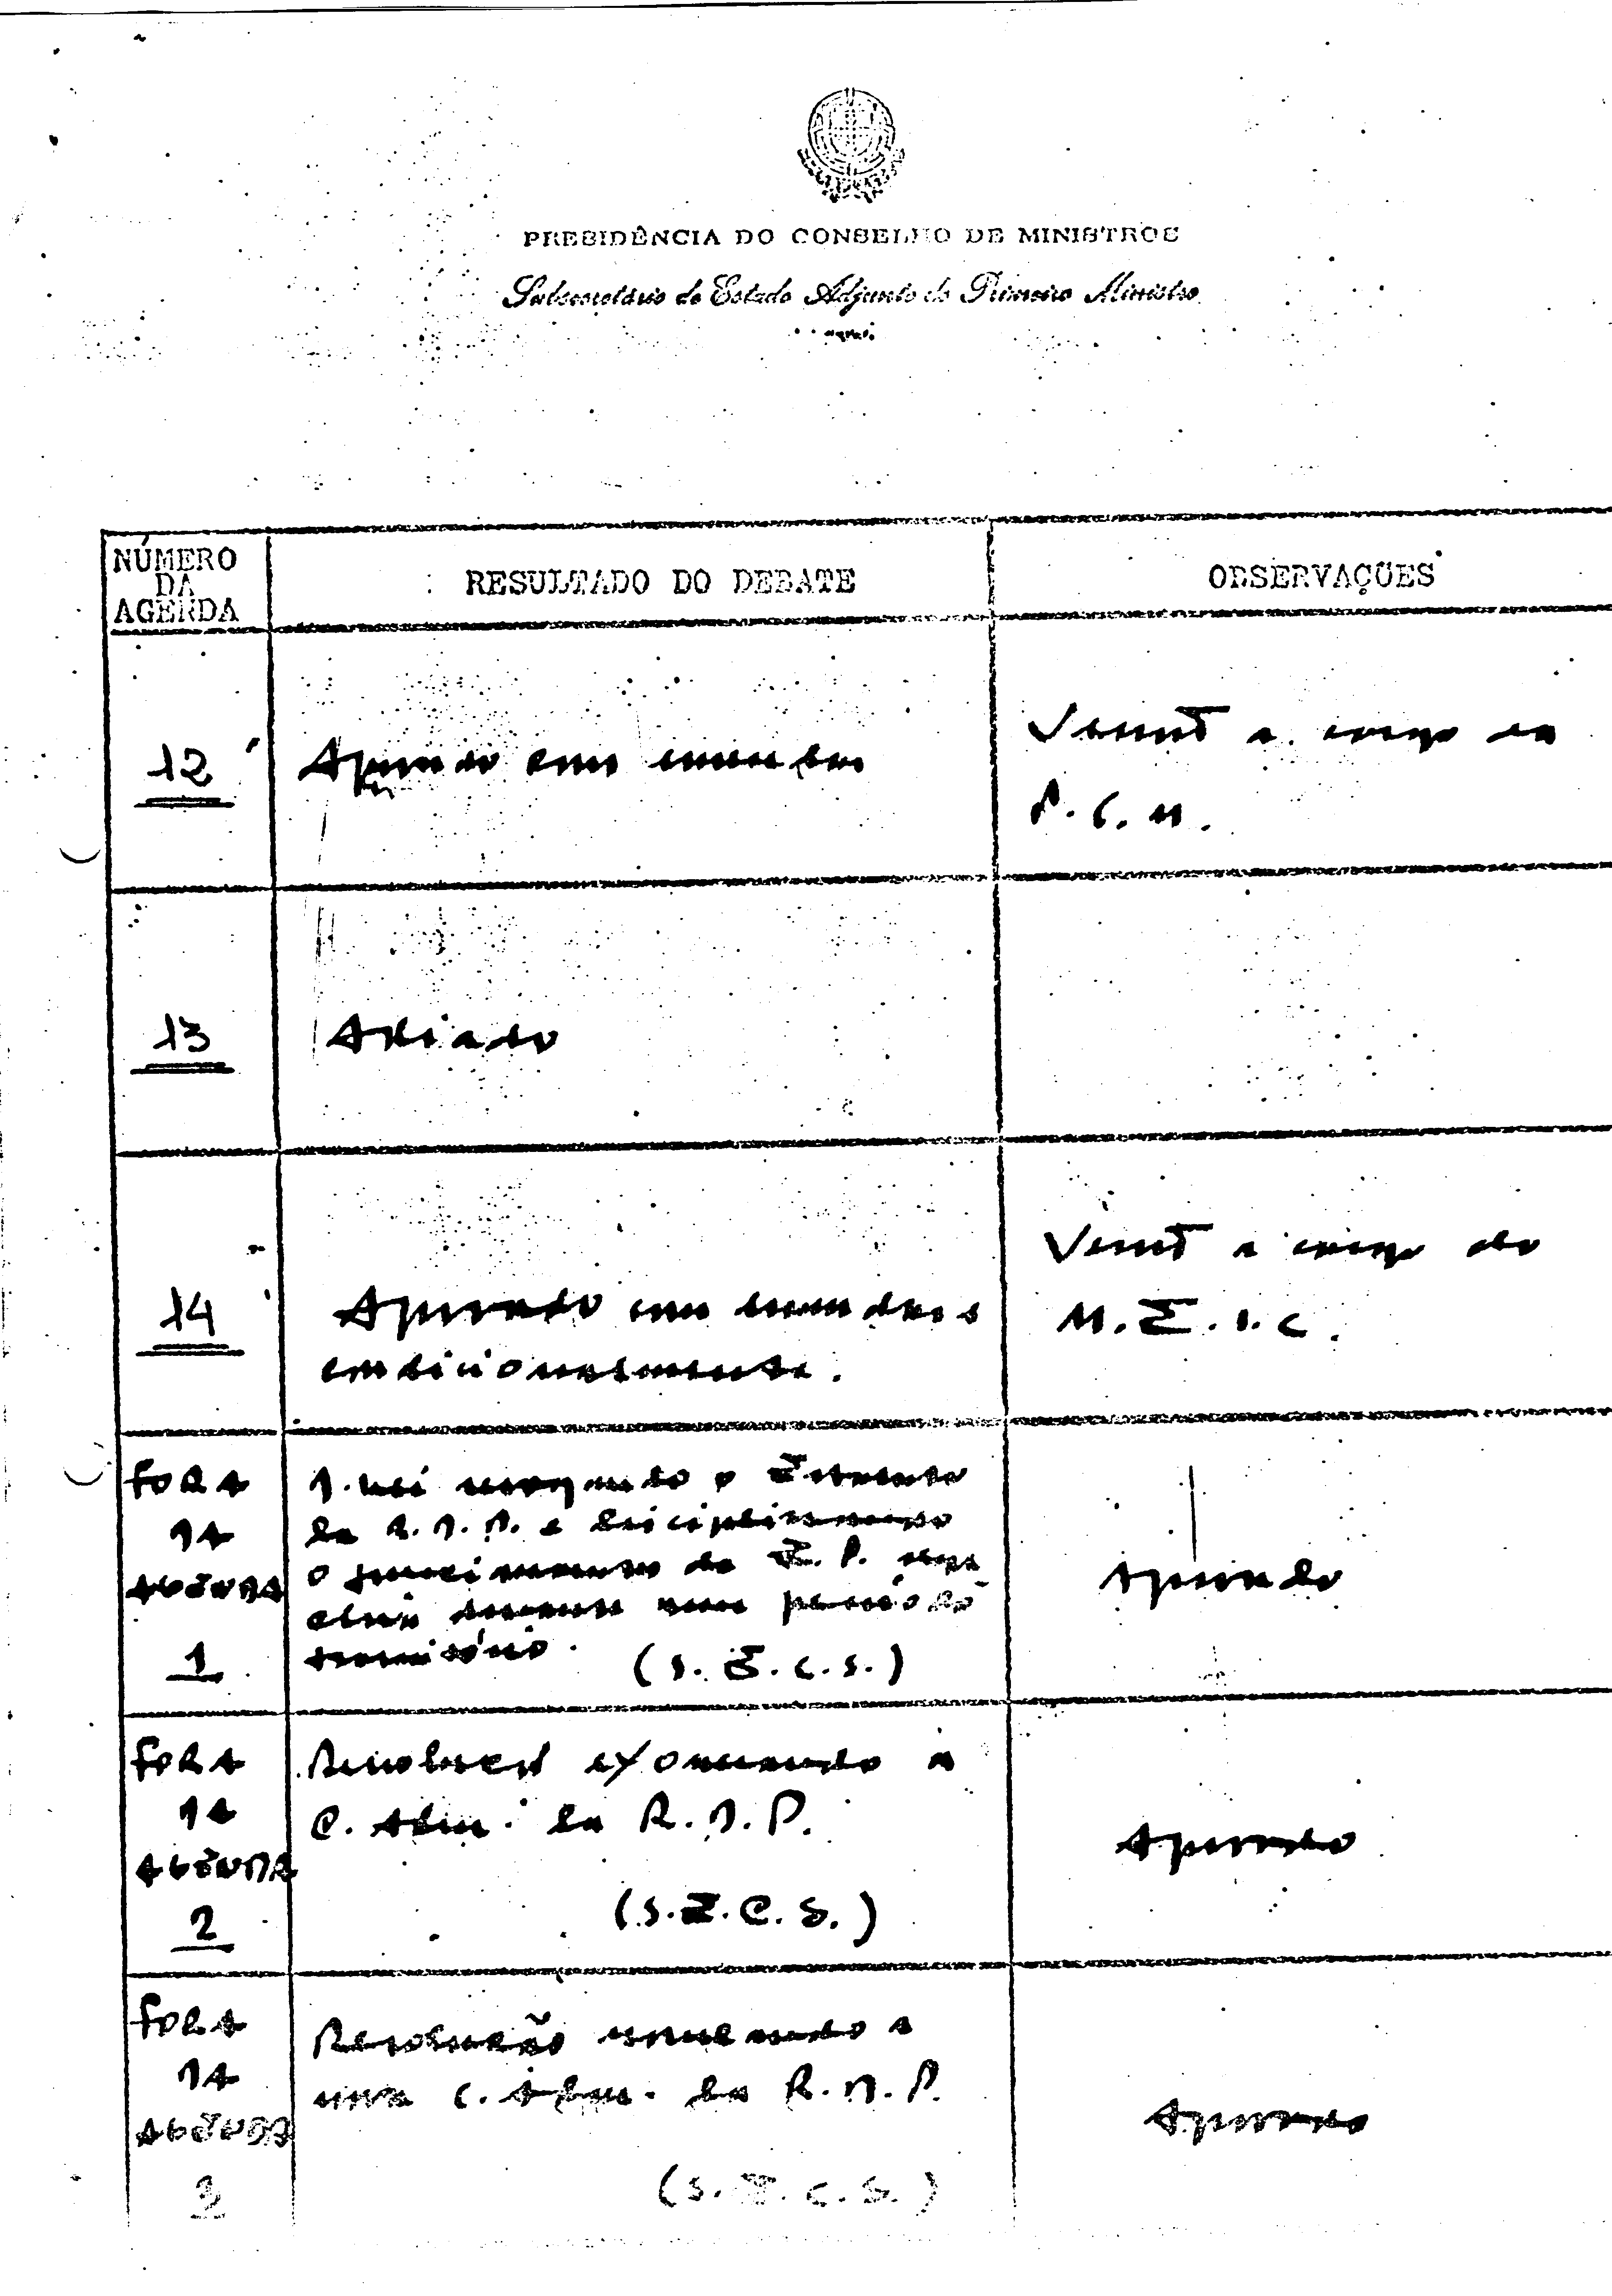 PRESIDÊNCIA DO CONSELHO DE MINISTROS
Subsecretário de Estado Adjunto do Primeiro Ministro
NÚMERO
DA
AGENDA
RESULTADO DO DEBATE
OBSERVAÇÕES
12
Aprovado com emendas
a cargo da
P.C.M.
13
Adiado
14
Aprovado com emendas
condicionalmente.
a cargo do
M.E.I.C.
FORA
DA
AGENDA
1
D. Lei revogando o Estatuto
da R.D.P. e disciplinando
o da E.P.
durante um período
transitório. (S.E.C.S.)
Aprovado
FORA
DA
AGENDA
2
Resolução exonerando a
C. Adm. da R.D.P.
(S.E.C.S.)
Aprovado
FORA
DA
AGENDA
3
Resolução nomeando a
nova C. Adm. da R.D.P.
(S.E.C.S.)
Aprovado